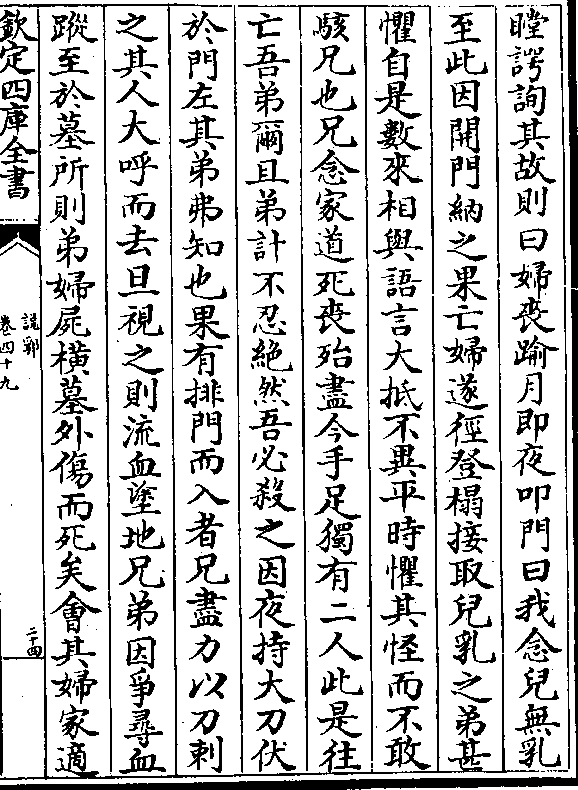 瞠諤詢其故則曰婦喪踰月即夜叩門曰我念兒無乳
至此因開門納之果亡婦遂徑登榻接取兒乳之弟甚
懼自是數來相與語言大抵不異平時懼其怪而不敢
駭兄也兄念家道死喪殆盡今手足獨有二人此是往
亡吾弟爾且弟計不忍絶然吾必殺之因夜持大刀伏
於門左其弟弗知也果有排門而入者兄盡力以刀刺
之其人大呼而去旦視之則流血塗地兄弟因爭尋血
蹤至於墓所則弟婦屍橫墓外傷而死矣會其婦家適
欽定四庫全書
説郛
卷四十九
二十四